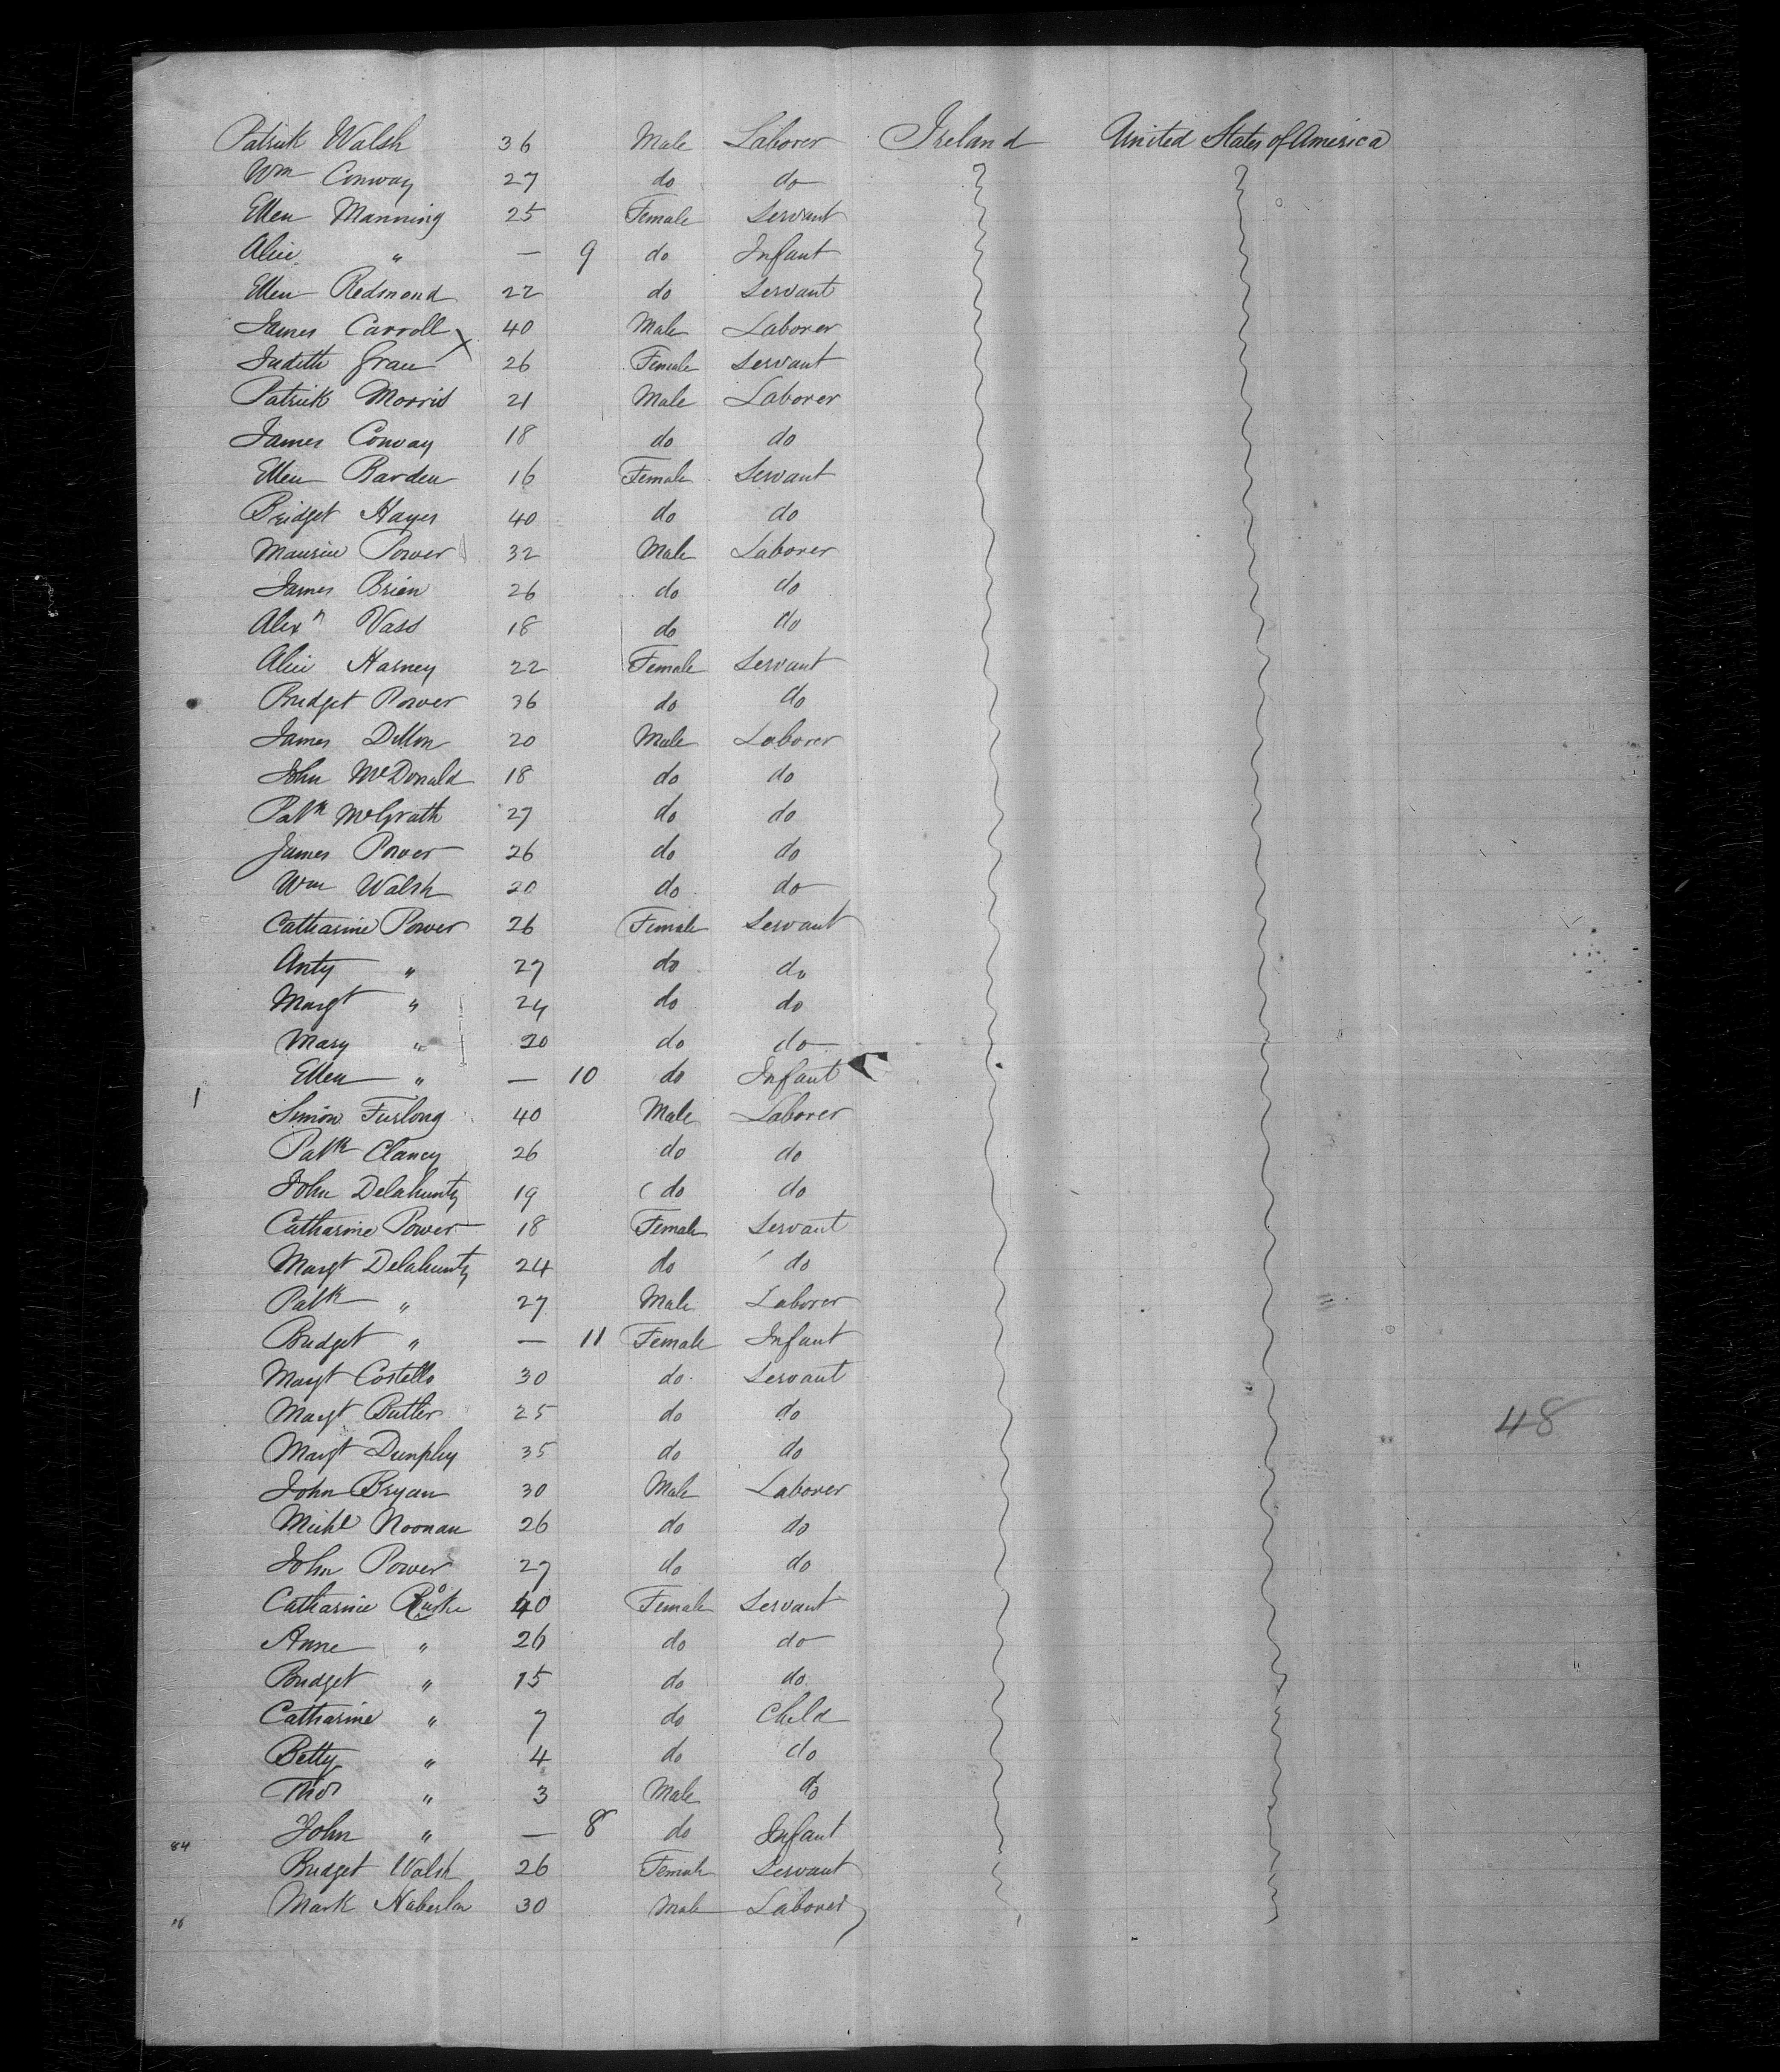 Patrick Walsh 36 Male Laborer Ireland United States of America
Wm Conway 27 do do
Ellen Manning 25 Female Servant
Alice " — 9 do Infant
Ellen Redmond 22 do Servant
James Carroll x 40 Male Laborer
Judith Grace 26 Female Servant
Patrick Morris 21 Male Laborer
James Conway 18 do do
Ellen Barden 16 Female Servant
Bridget Hayes 40 do do
Maurice Power 32 Male Laborer
James Brien 26 do do
Alexr Vass 18 do do
Alice Harney 22 Female Servant
Bridget Power 36 do do
James Dillon 20 Male Laborer
John McDonald 18 do do
Patk McGrath 27 do do
James Power 26 do do
Wm Walsh 20 do do
Catharine Power 26 Female Servant
Anty " 27 do do
Margt " 24 do do
Mary " 20 do do
Ellen " — 10 do Infant
Simon Furlong 40 Male Laborer
Patk Clancy 26 do do
John Delahunty 19 do do
Catharine Power 18 Female Servant
Margt Delahunty 24 do do
Patk " 27 Male Laborer
Bridget " — 11 Female Infant
Margt Costello 30 do Servant
Margt Butler 25 do do
48
Margt Dunphy 35 do do
John Bryan 30 Male Laborer
Michl Noonan 26 do do
John Power 27 do do
Catharine 40 Female Servant
Anne " 26 do do
Bridget " 15 do do
Catharine " 7 do Child
Betty " 4 do do
Thos " 3 Male do
84 John " — 8 do Infant
Bridget Walsh 26 Female Servant
Mark Haberlan 30 Male Laborer